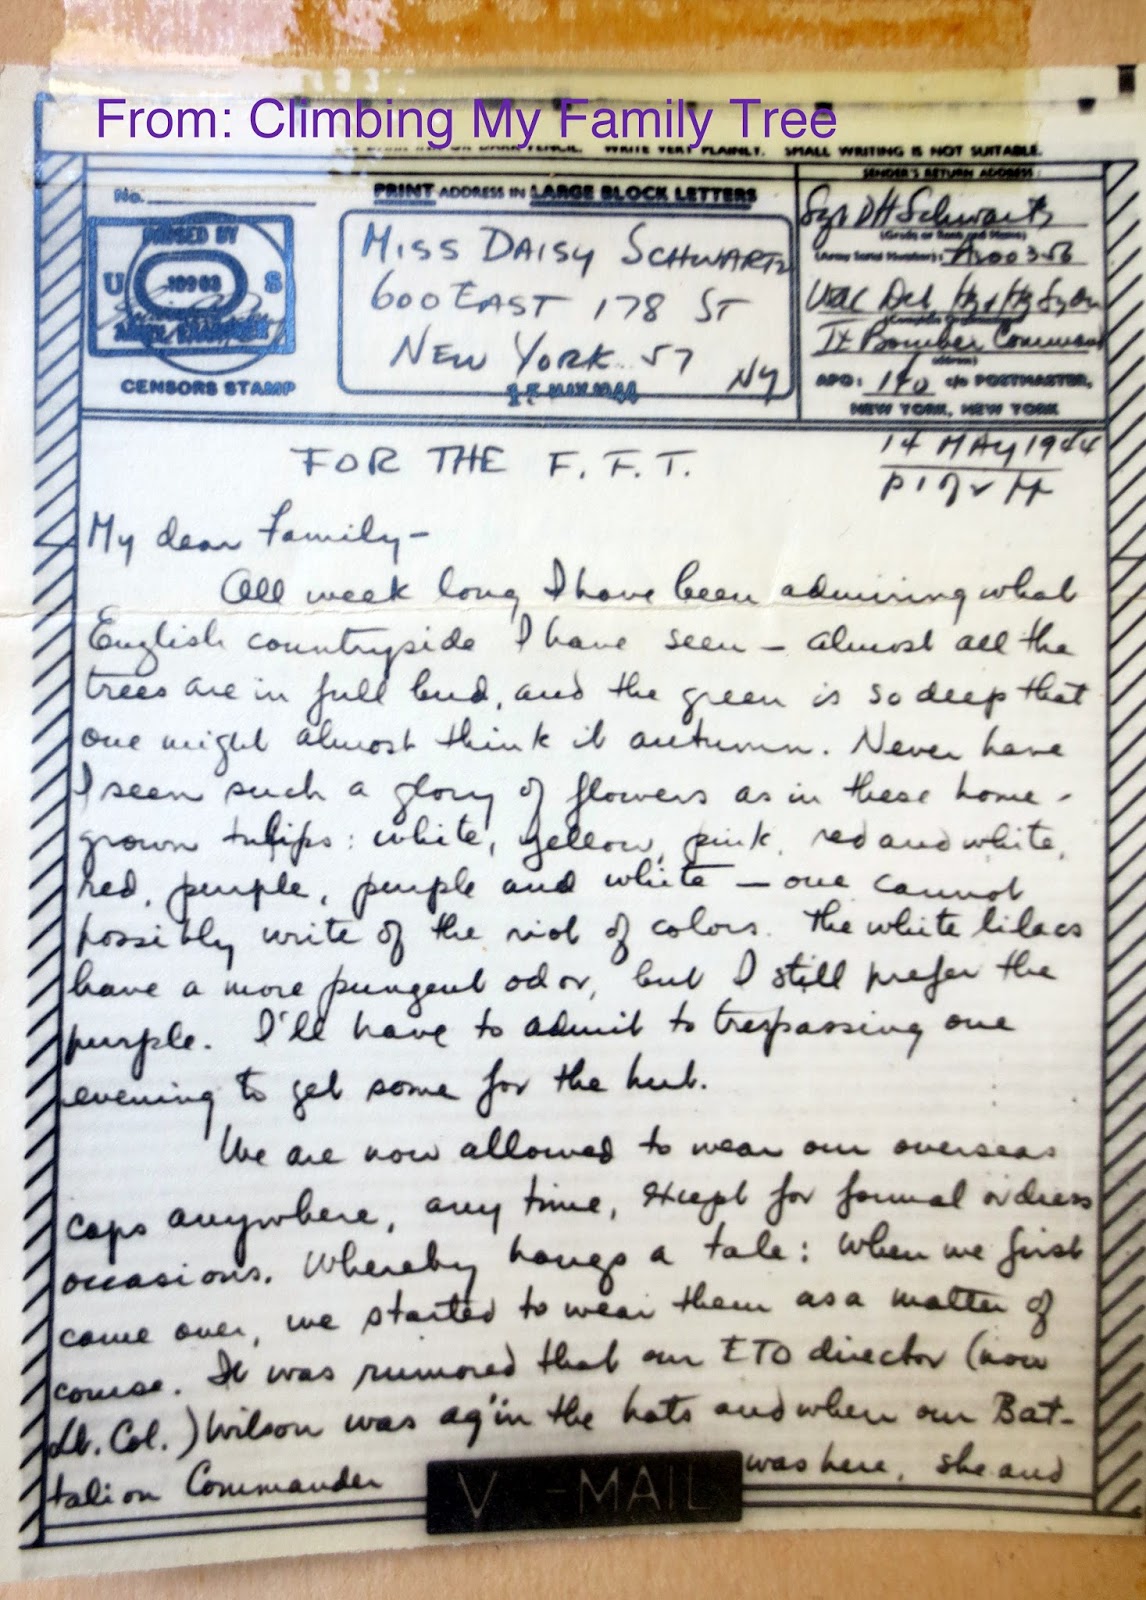 From: Climbing My Family Tree
WRITE VERY PLAINLY. SMALL WRITING IS NOT SUITABLE.
No.
PRINT ADDRESS IN LARGE BLOCK LETTERS
SENDER'S RETURN ADDRESS
PASSED BY
U S
CENSORS STAMP
MISS DAISY SCHWARTZ
600 EAST 178 ST
NEW YORK 57
NY
15 MAY 1944
Sgt DH Schwartz
(Grade or Rank and Name)
(Army Serial Number)
WAC Det Hq & Hq Sqdn
IX Bomber Command
(Address)
APO: 140 c/o POSTMASTER,
NEW YORK, NEW YORK
14 MAY 1944
FOR THE F.F.T.
My dear Family -
All week long I have been admiring what
English countryside I have seen - almost all the
trees are in full bud, and the green is so deep that
one might almost think it autumn. Never have
I seen such a glory of flowers as in these home-
grown tulips: white, yellow, pink, red and white,
red, purple, purple and white - one cannot
possibly write of the riot of colors. The white lilacs
have a more pungent odor, but I still prefer the
purple. I'll have to admit to trespassing one
evening to get some for the hut.
We are now allowed to wear our overseas
caps anywhere, any time, except for formal or dress
occasions. Whereby hangs a tale: When we first
came over, we started to wear them as a matter of
course. It was rumored that our ETO director (now
Lt. Col.) Wilson was ag'in the hats and when our Bat-
talion Commander was here, she and
V-MAIL